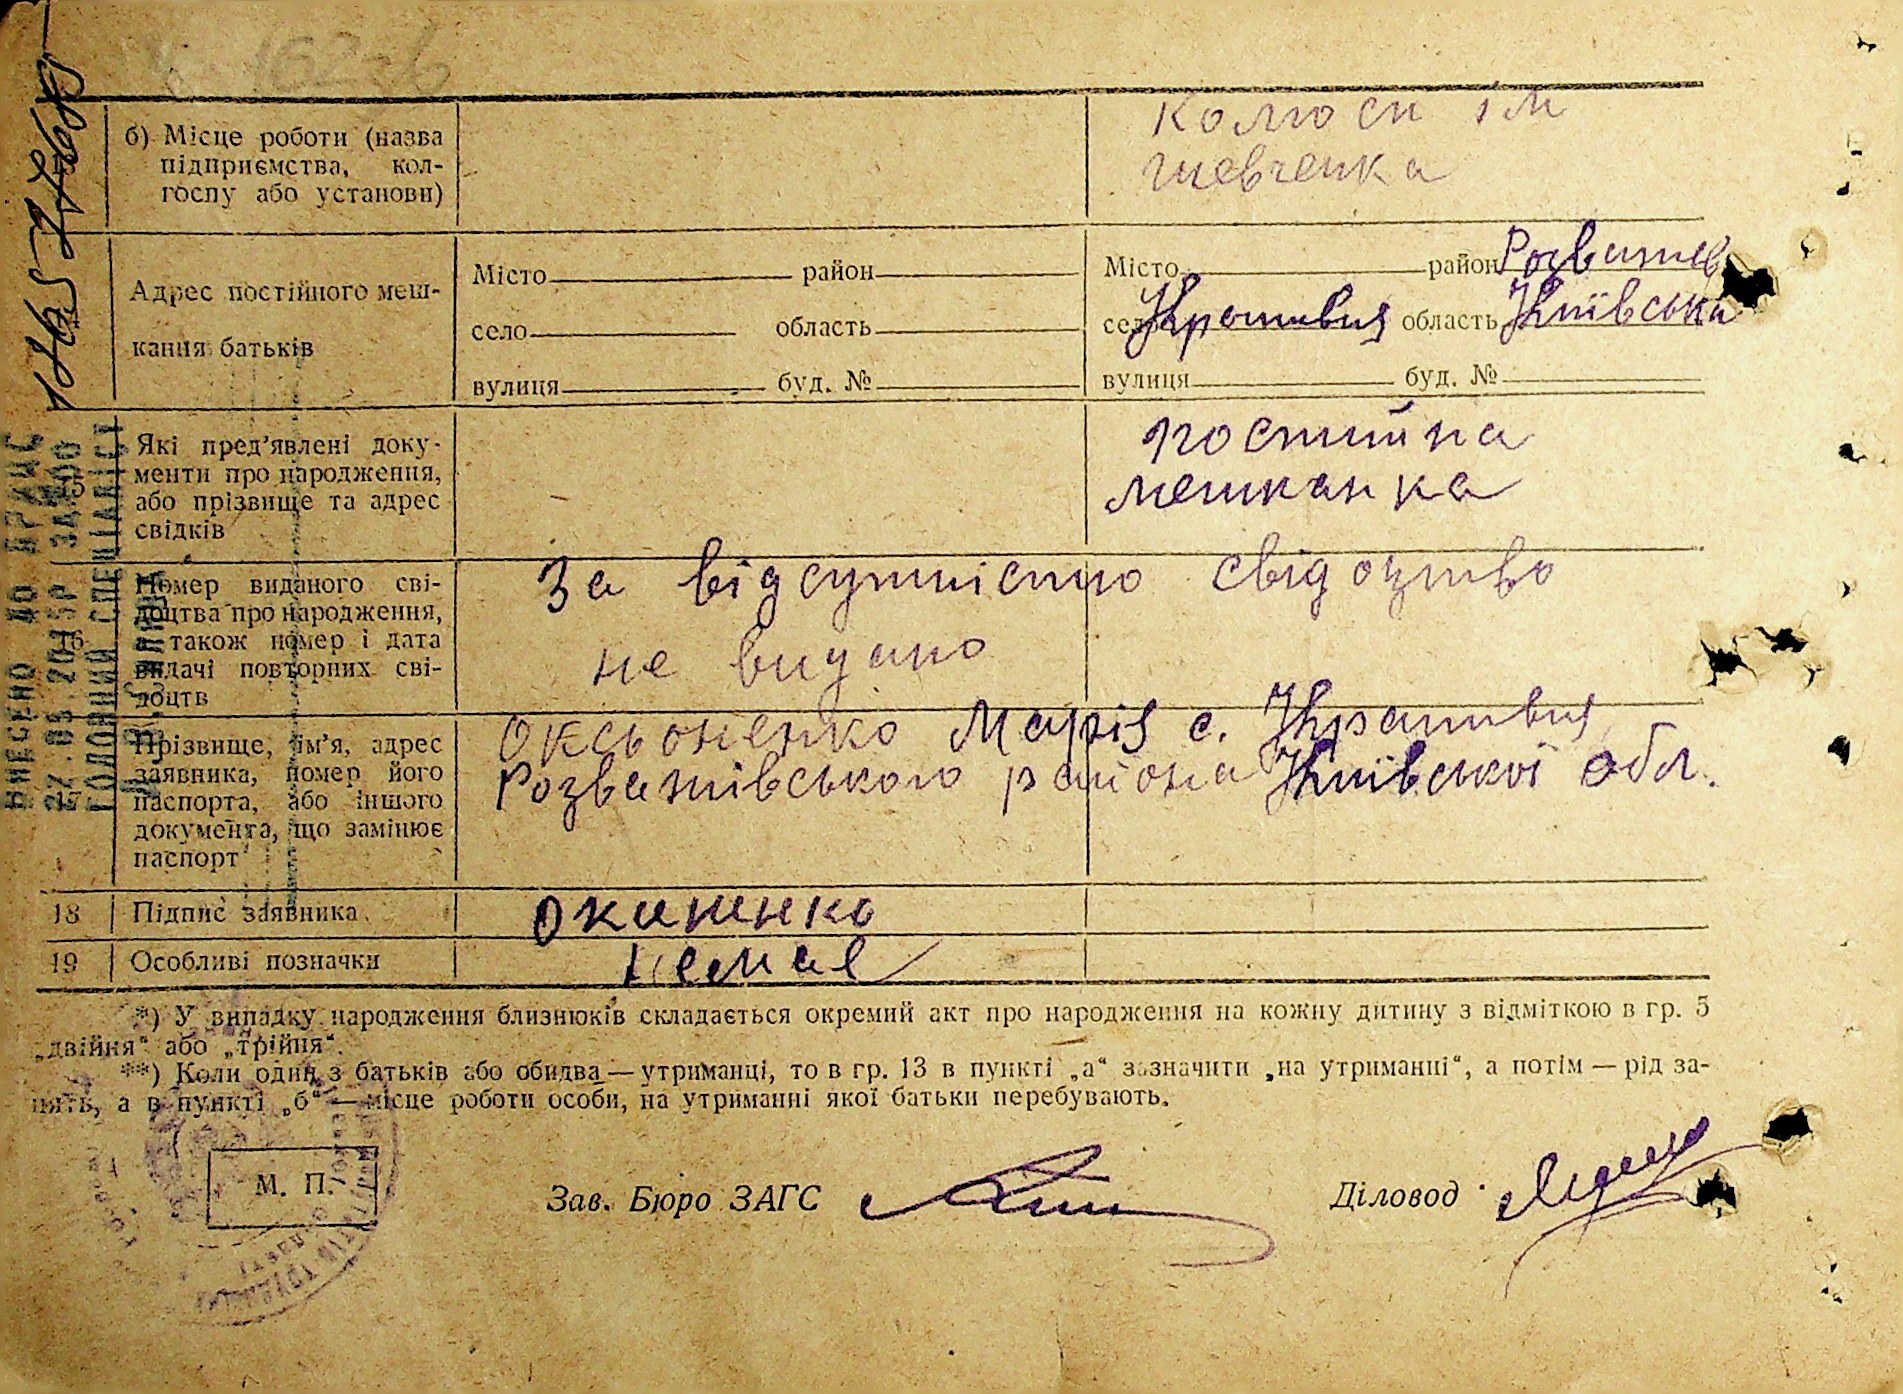 б) Місце роботи (назва
підприємства, кол-
госпу або установи)
шевченка
Адрес постійного меш-
кання батьків
Місто район
село область
вулиця буд. №
Місто район Розважів
село Кропивня область Київська
вулиця буд. №
15
Які пред'явлені доку-
менти про народження,
або прізвище та адрес
свідків
постійна
мешканка
16
Номер виданого сві-
доцтва про народження,
а також номер і дата
видачі повторних сві-
доцтв
За відсутністю свідоцтво
не видано
17
Прізвище, ім'я, адрес
заявника, номер його
паспорта, або іншого
документа, що замінює
паспорт
Оксьоненко Марія с. Кропивня
Розважівського района Київської обл.
18 Підпис заявника
19 Особливі позначки немає
*) У випадку народження близнюків складається окремий акт про народження на кожну дитину з відміткою в гр. 5
„двійня“ або „трійня“.
**) Коли один з батьків або обидва — утриманці, то в гр. 13 в пункті „а“ зазначити „на утриманні“, а потім — рід за-
нять, а в пункті „б“ — місце роботи особи, на утриманні якої батьки перебувають.
М. П.
Зав. Бюро ЗАГС
Діловод